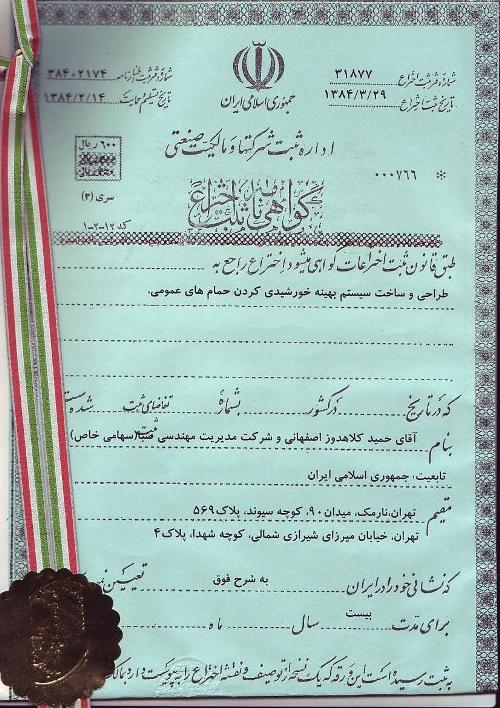 جمهوری اسلامی ایران
شماره و فرم ثبت اختراع ۳۱۸۷۷
تاریخ ثبت اختراع ۱۳۸۴/۳/۲۹
شماره و فرم ثبت اظهارنامه ۳۸۴۰۲۱۷۴
تاریخ تسلیم و حمایت ۱۳۸۴/۲/۱۴
اداره ثبت شرکتها و مالکیت صنعتی
۶۰۰ ریال
* ۰۰۰۷۶۶
سری (۲)
گواهی نامه ثبت اختراع
کد ۱۲-۲-۱
طبق قانون ثبت اختراعات گواهی میشود اختراع راجع به
طراحی و ساخت سیستم بهینه خورشیدی کردن حمام های عمومی.
که در تاریخ در کشور بشماره تقاضای ثبت شده است
بنام آقای حمید کلاهدوز اصفهانی و شرکت مدیریت مهندسی صبا(سهامی خاص)
تابعیت: جمهوری اسلامی ایران
مقیم تهران، نارمک، میدان ۹۰، کوچه سیوند، پلاک ۵۶۹
تهران، خیابان میرزای شیرازی شمالی، کوچه شهدا، پلاک ۴
که نشانی خود را در ایران به شرح فوق تعیین
برای مدت بیست سال ماه
به ثبت رسیده است این ورقه که یک نسخه از توصیف و نقشه اختراع را به پیوست دارد